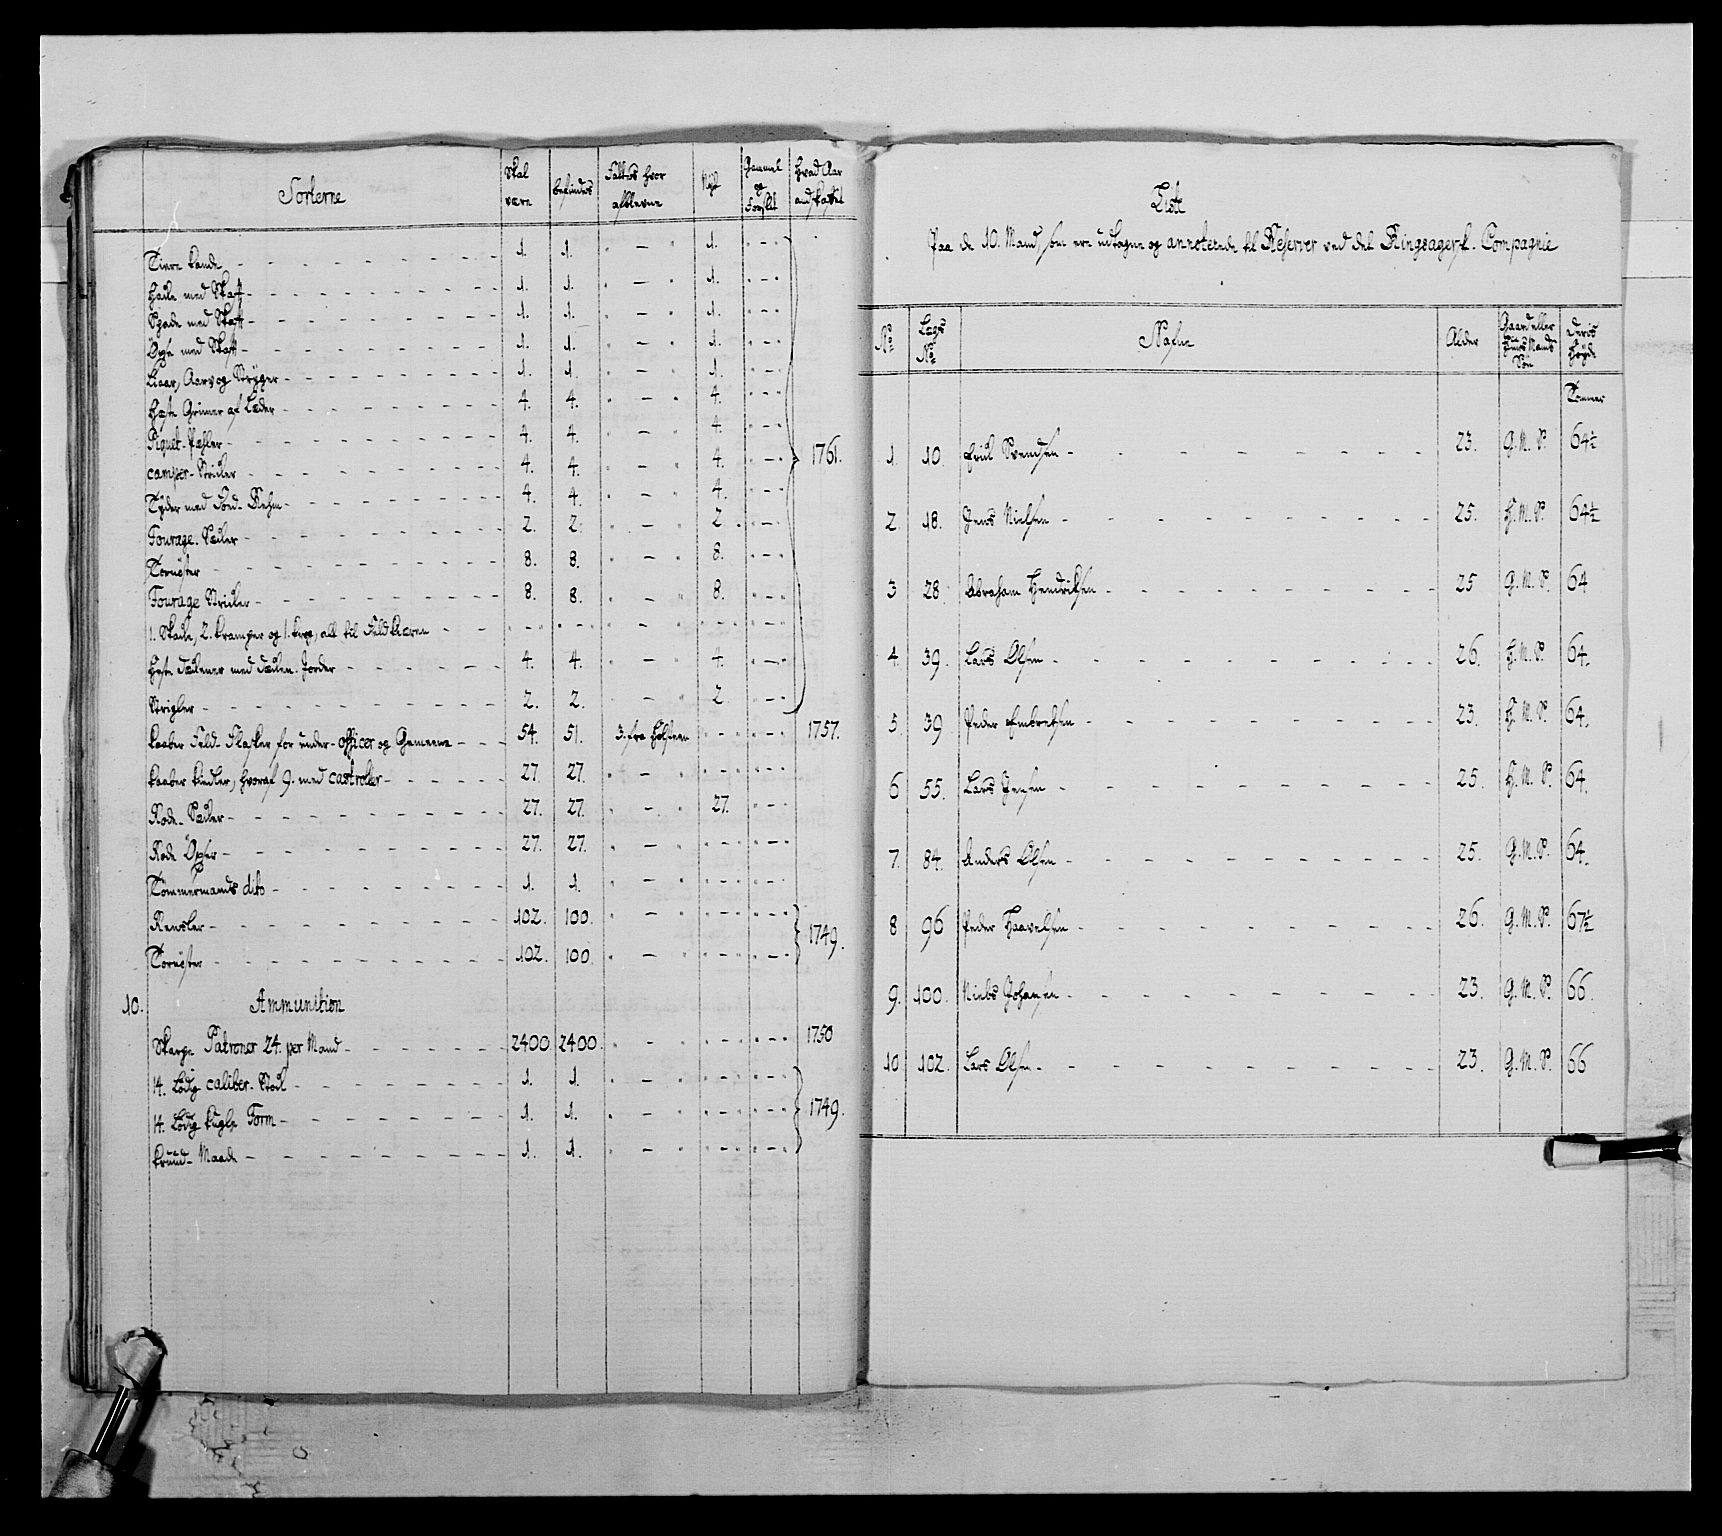 Sorterne | Skal være | befindes | Fattes hvor afblevne | Nye | Gammel og Forslit | hvad Aar anskaffet
Tiære Kande | 1. | 1. | 1.
Hakke med Skaft | 1. | 1. | 1.
Spade med Skaft | 1. | 1. | 1.
Öxse med Skaft | 1. | 1. | 1.
Liaar, Aarv og Stryger | 1. | 1. | 1.
Heste Grimer af Læder | 4. | 4. | 4.
Piquet-Pæhler | 4. | 4. | 4. | 1761.
camper-Strikker | 4. | 4. | 4.
Tÿder med Foed-Rehm | 4. | 4. | 4.
Fourage-Sække | 2. | 2. | 2.
Tornÿster | 8. | 8. | 8.
Fourage Strikker | 8. | 8. | 8.
1. Skade, 2. Kramper og 1. , alt til Feldkæren
Heste Dækkener med Dækken-Jorder | 4. | 4. | 4.
Strigler | 2. | 2. | 2.
Kaaber Feld-Flasker for under-officer og Gemeene | 54. | 51. | 3. fra Holsteen | 1757.
Kaaber Kiedler, hvoraf 9. med castroller | 27. | 27.
Rode-Sækker | 27. | 27. | 27.
Rode Öxser | 27. | 27.
Tömmermands dito | 1. | 1.
Rensler | 102. | 100.
Tornÿster | 102. | 100. | 1749.
10. Ammunition
Skarpe Patroner 24. per Mand | 2400 | 2400. | 1750
14. Lodig caliber-Stok | 1. | 1.
14. Lodig Kugle Form | 1. | 1. | 1749.
Krud-Maade | 1. | 1.
Liste
Paa de 10. Mand, som ere udtagne og annoterede til Reserver ved det Ringsagerske Compagnie
No | Lægs No | Nafne | Alder | Gaard eller Huus Mands Søn | Deris Høÿde
Tommer
1 | 10. | Erik Svendsen | 23. | G. M. S. | 64½
2 | 18. | Jens Nielsen | 25. | H. M. S. | 64½
3 | 28. | Abraham Hendriksen | 25 | G. M. S. | 64
4. | 39. | Lars Olsen | 26. | H. M. S. | 64.
5. | 39 | Peder Embretsen | 23. | H. M. S. | 64.
6 | 55. | Lars Jensen | 25. | H. M. S. | 64.
7. | 84. | Anders Olsen | 25. | G. M. S. | 64.
8 | 96 | Peder Haavelsen | 26. | G. M. S. | 67½
9. | 100. | Niels Johansen | 23. | G. M. S. | 66.
10 | 102. | Lars Olsen | 23. | G. M. S. | 66